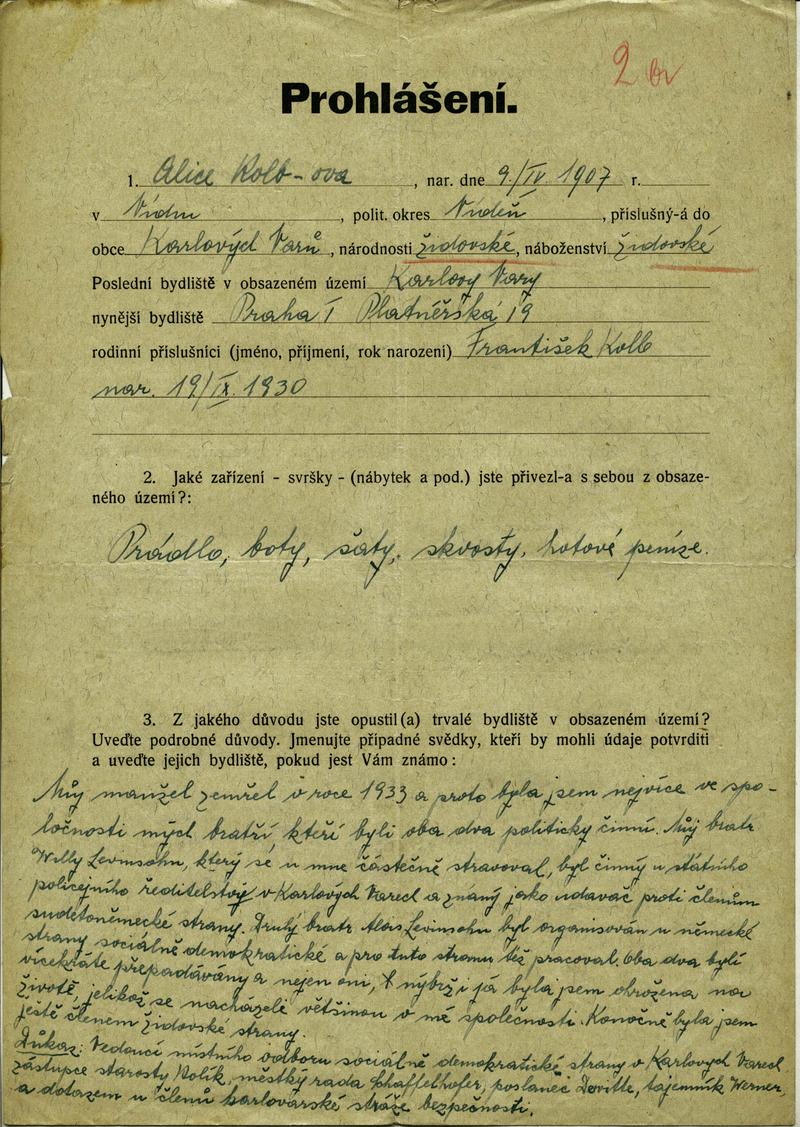 2
Prohlášení.
1. Alice Kolb-ova, nar. dne 9./IV. 1907 r.
v Vídni, polit. okres Vídeň, příslušný-á do
obce Karlových Varů, národnosti židovské, náboženství židovské
Poslední bydliště v obsazeném území Karlovy Vary
nynější bydliště Praha I Platnéřská 19
rodinní příslušníci (jméno, příjmení, rok narození) František Kolb
nar. 19/IX. 1930
2. Jaké zařízení - svršky - (nábytek a pod.) jste přivezl-a s sebou z obsaze-
ného území?:
Prádlo, boty, šaty, skvosty, hotové peníze.
3. Z jakého důvodu jste opustil(a) trvalé bydliště v obsazeném území?
Uveďte podrobné důvody. Jmenujte případné svědky, kteří by mohli údaje potvrditi
a uveďte jejich bydliště, pokud jest Vám známo:
Můj manžel zemřel v roce 1933 a proto byla jsem nejvíce ve spo-
ločnosti mých bratří kteří byli oba dva politicky činní. Můj bratr
Willy Levinsohn, který se u mne částečně stravoval, byl činný u státního
policejního ředitelství v Karlových Varech a známý jako udavač proti členům
sudetoněmecké strany. Druhý bratr Alois Levinsohn byl organisován u německé
strany sociálně demokratické a pro tuto stranu též pracoval. Oba dva byli
vícekráte přepadávány a nejen oni, nýbrž i já byla jsem ohrožena na
životě, jelikož se nacházeli většinou v mé společnosti. Konečně byla jsem
ještě členem židovské strany.
Důkaz: Vedoucí místního odboru sociálně demokratické strany v Karlových Varech
zástupce starosty Kolík, městký rada Schaffelhofer, poslanec Dewitte, tajemník Werner
a dotazem u členů karlovarské stráže bezpečnosti.